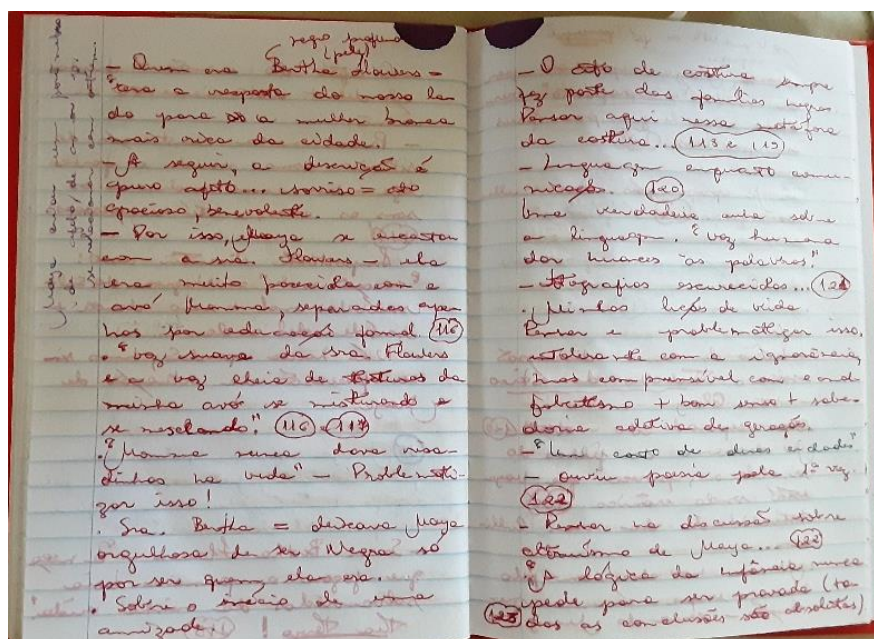 negra profunda
(pele)
- Quem era Bertha Flowers -
"era a resposta do nosso la-
do para a mulher branca
mais rica da cidade."
- A seguir, a descrição é
puro afeto... sorriso =
gracioso, benevolente.
- Por isso, Maya se
com a sra. Flowers - ela
era muito parecida com a
avó Momma, separadas ape-
nas por educação formal. (116)
. "voz suave da sra. Flowers
e a voz cheia de texturas da
minha avó se misturando e
se mesclando." (116) (117)
. "Momma nunca dava risa-
dinhas na vida" - Problemati-
zar isso!
. Sra. Bertha = deixava Maya
orgulhosa de ser Negra só
por ser quem ela era.
. Sobre o início de uma
amizade.
- O ato de costura sempre
fez parte das famílias negras
Pensar aqui nessa metáfora
da costura... (118 e 119)
- Linguagem enquanto comu-
nicação. (120)
Uma verdadeira aula sobre
a linguagem. "voz humana
dar nuances às palavras."
- escurecidas... (121)
. Minhas lições de vida.
Pensar e problemathizar isso.
intolerante com a ignorância,
mas compreensível com o anal-
fabetismo + bom senso + sabe-
doria coletiva de gerações.
- "Um conto de duas cidades"
- ouviu poesia pela 1ª vez
(122)
- Pensar na discussão sobre
altruísmo de Maya... (122)
"A lógica da infância nunca
pede para ser provada (to-
(123) das as conclusões são absolutas)